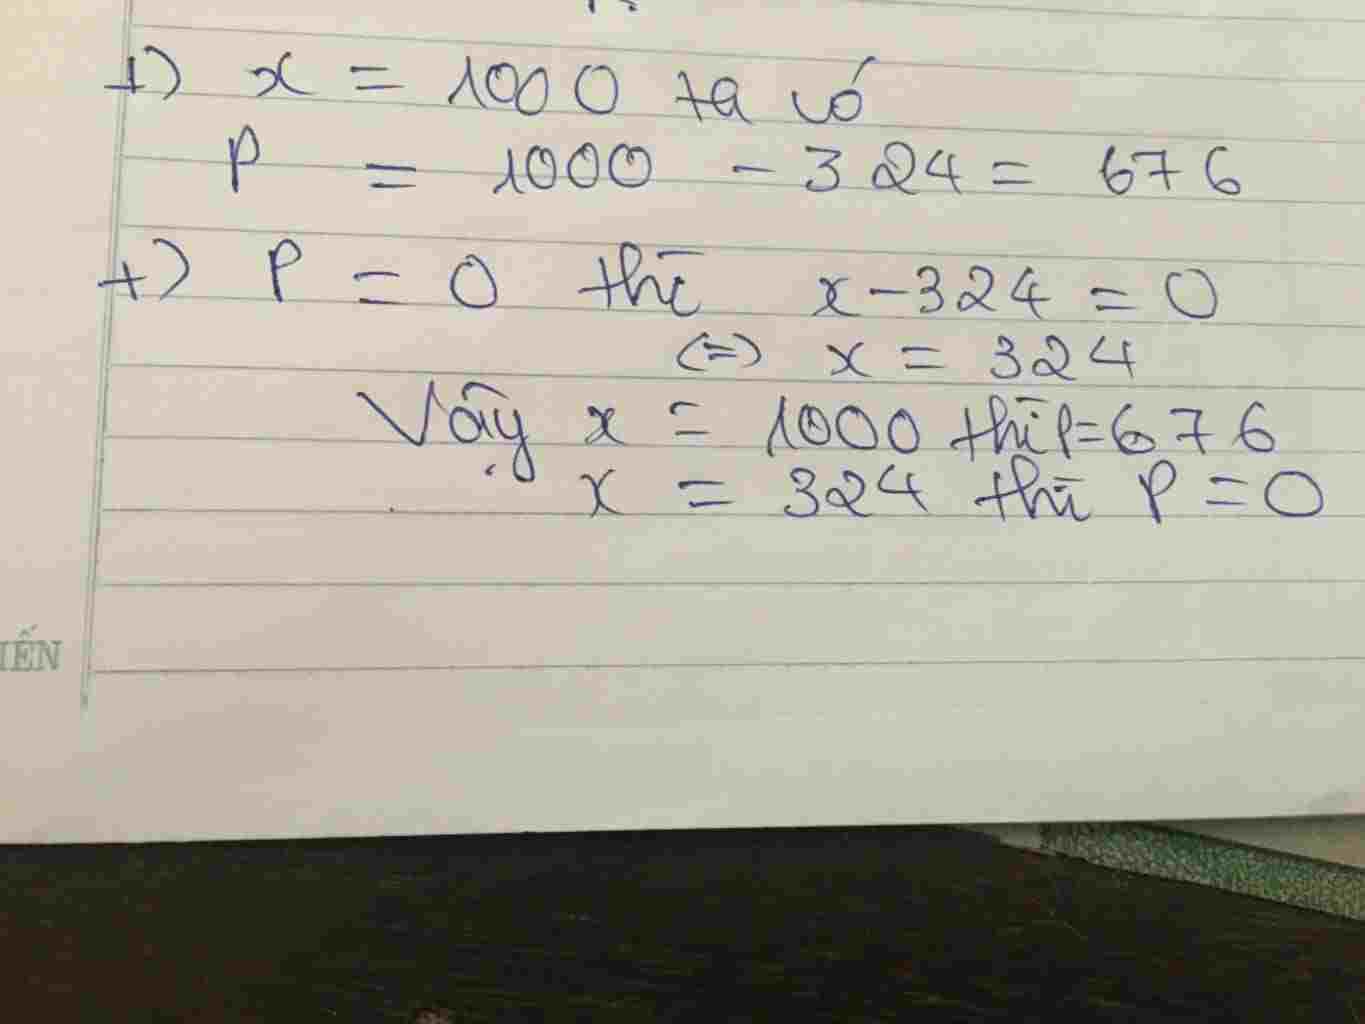 +) x = 1000 ta có
P = 1000 - 324 = 676
+) P = 0 thì x - 324 = 0
(=) x = 324
Vậy x = 1000 thì P = 676
x = 324 thì P = 0
IẾN